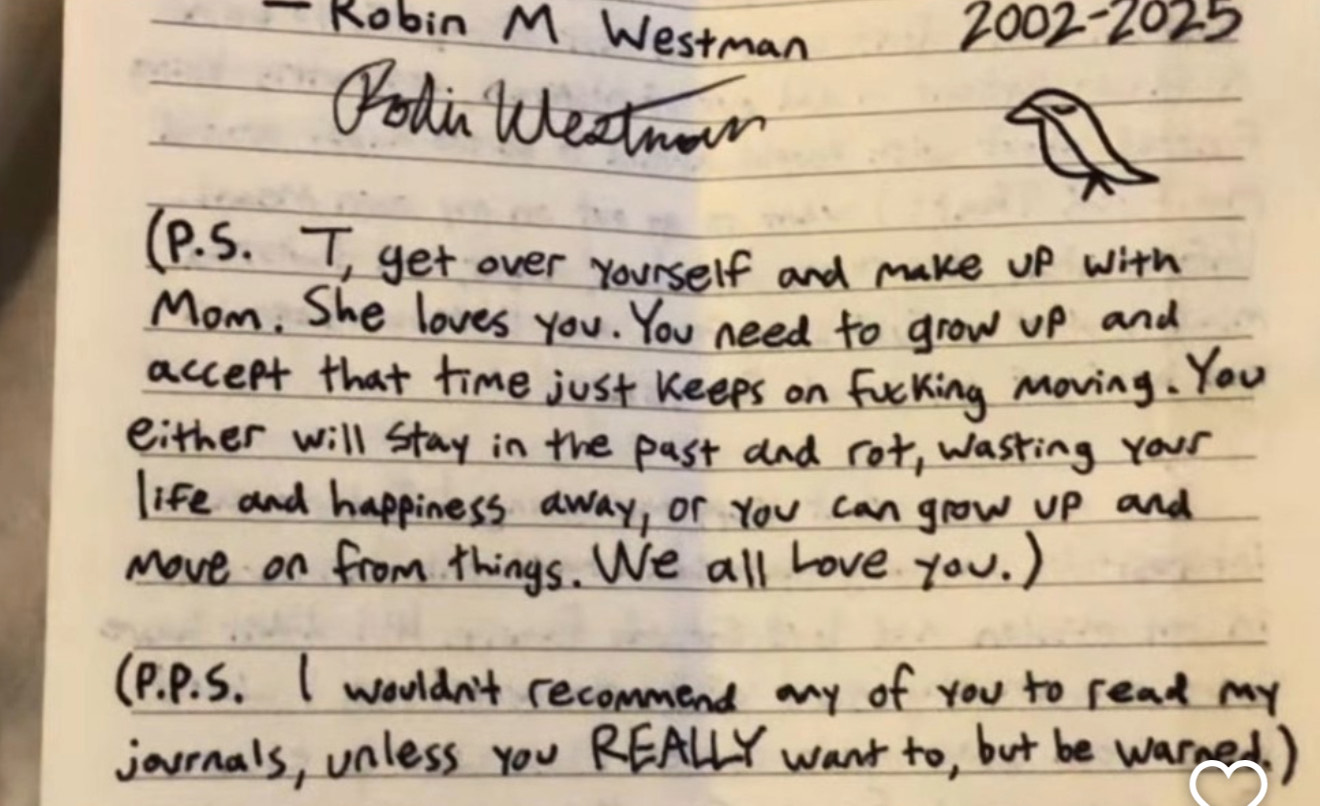 — Robin M Westman 2002-2025
Robin Westman
(P.S. T, get over yourself and make up with
Mom. She loves you. You need to grow up and
accept that time just keeps on fucking moving. You
either will stay in the past and rot, wasting your
life and happiness away, or you can grow up and
move on from things. We all Love you.)
(P.P.S. I wouldn't recommend any of you to read my
journals, unless you REALLY want to, but be warned.)